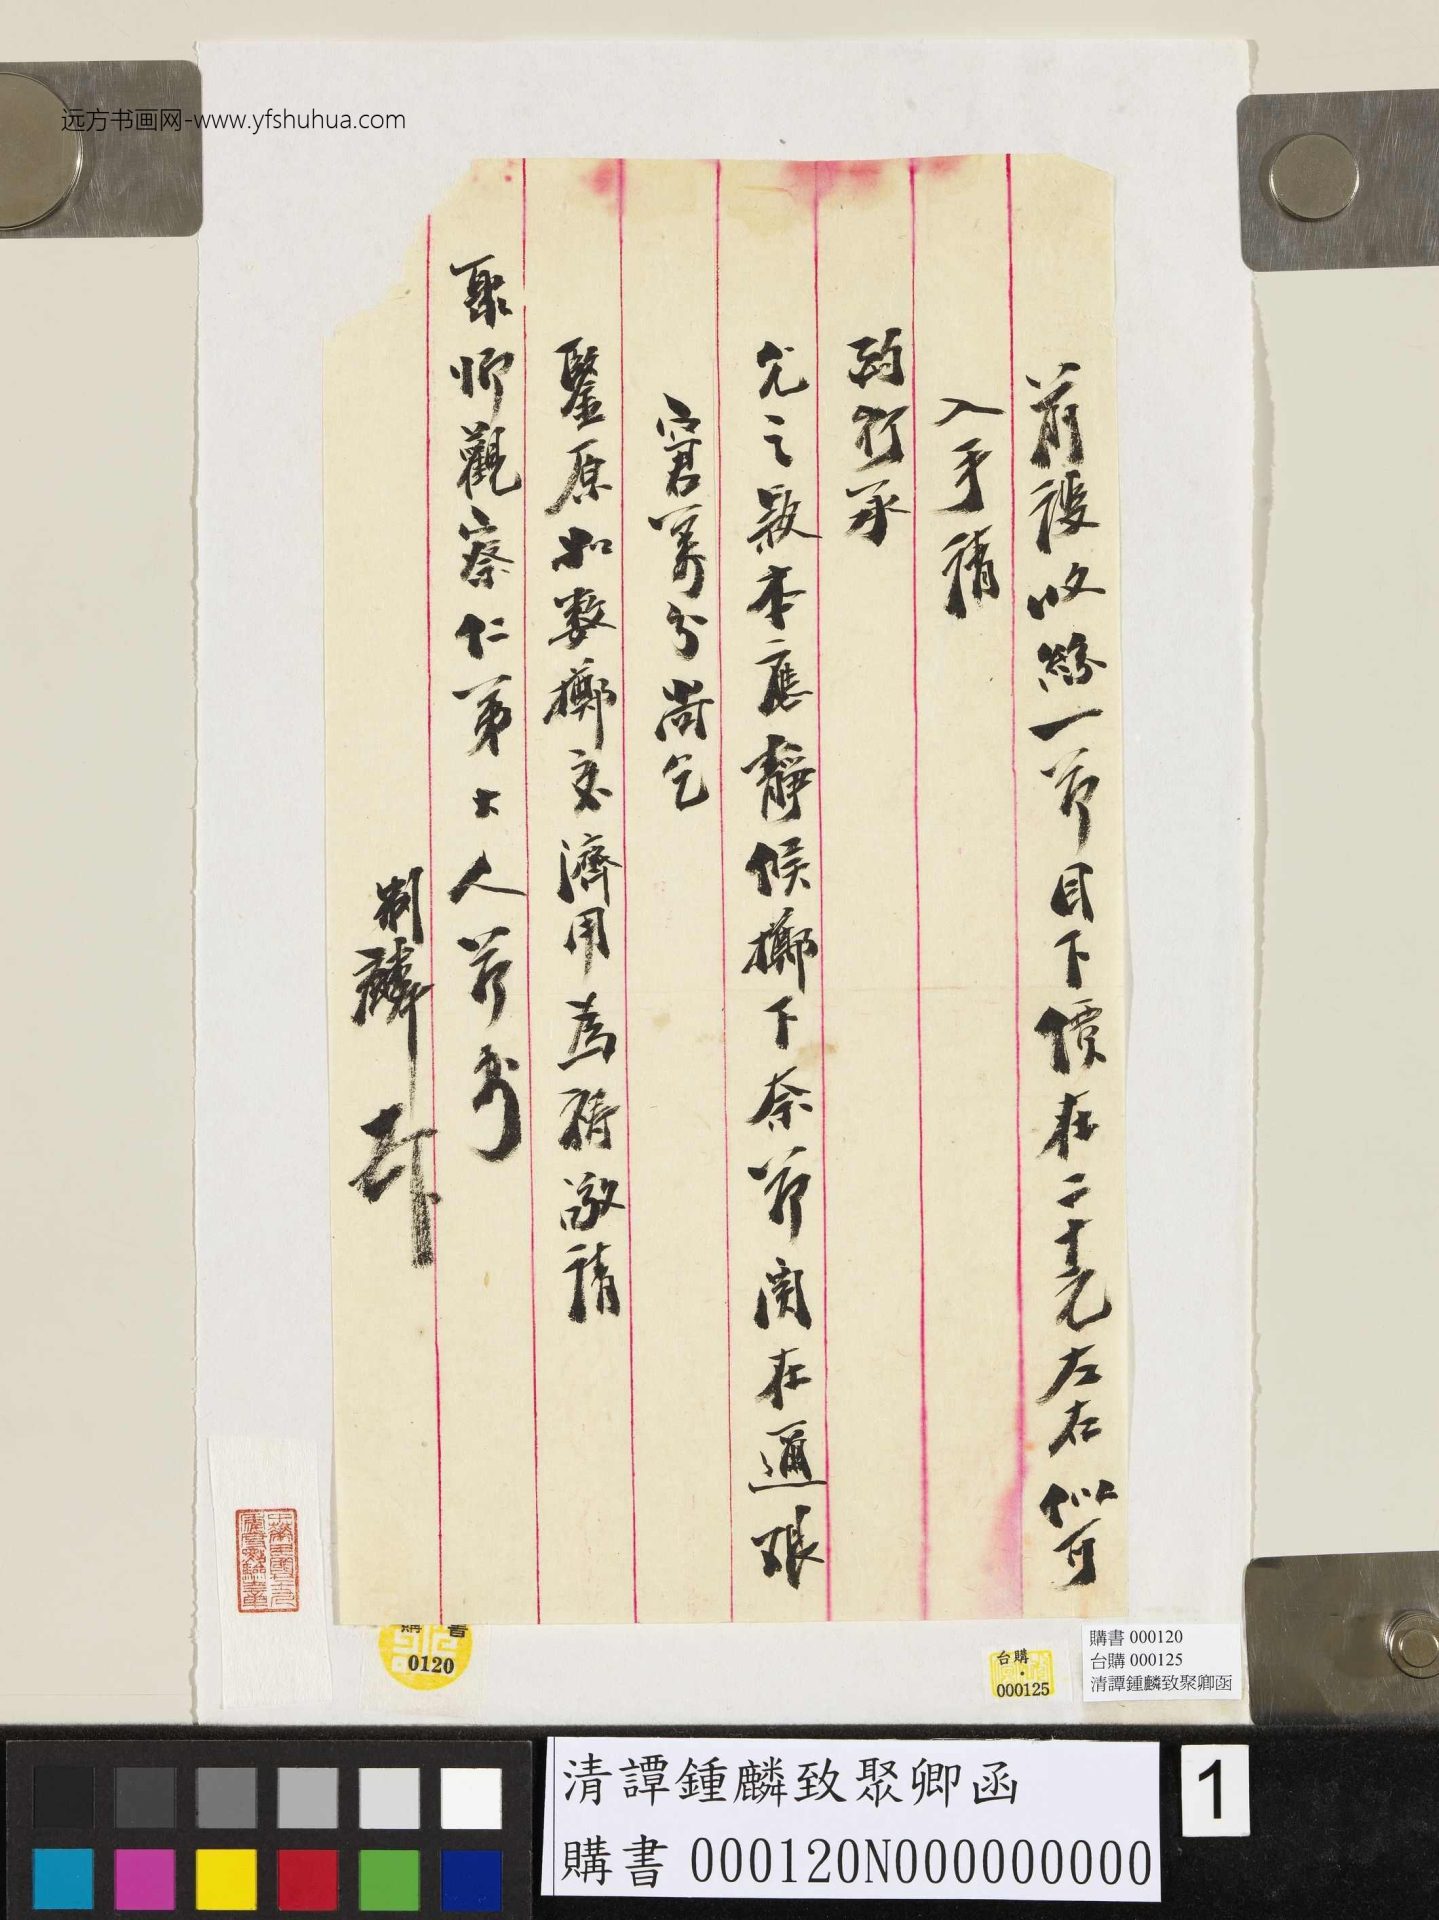 远方书画网-www.yfshuhua.com
前議收繳一節目下價在二十元左右似可
入手請
酌行承
允之款本應靜候擲下奈節關在邇艱
窘萬分尚乞
鑒原如數擲交濟用為禱敬請
聚卿觀察仁弟大人節安
制麟 頓
購書
0120
台購
000125
購書 000120
台購 000125
清譚鍾麟致聚卿函
清譚鍾麟致聚卿函
購書 000120N000000000
1